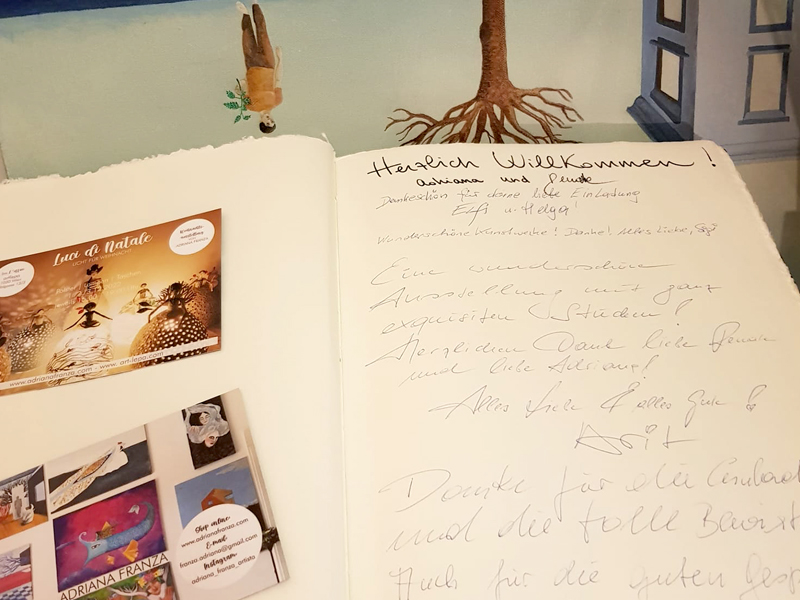 Luci di Natale
LICHT FÜR WEIHNACHT
www.adrianafranza.com - www.art-lepa.com
Shop online:
www.adrianafranza.com
E.mail
franza.adriana@gmail.com
Instagram
adriana_franza_artista
ADRIANA FRANZA
Herzlich Willkommen !
adriana und
Dankeschön für deine liebe Einladung
Elfi u. Helga!
Wunderschöne Kunstwerke! Danke! Alles Liebe,
Eine wunderschöne
Ausstellung mit ganz
exquisiten Stücken!
Herzlichen Dank liebe
und liebe Adriana!
Alles Liebe & alles Gute
Danke für die
und die tolle
Auch für die guten